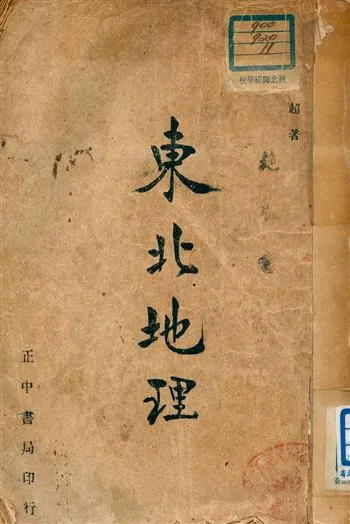 900
920
11
臺北師範學校
超著
東北地理
正中書局印行